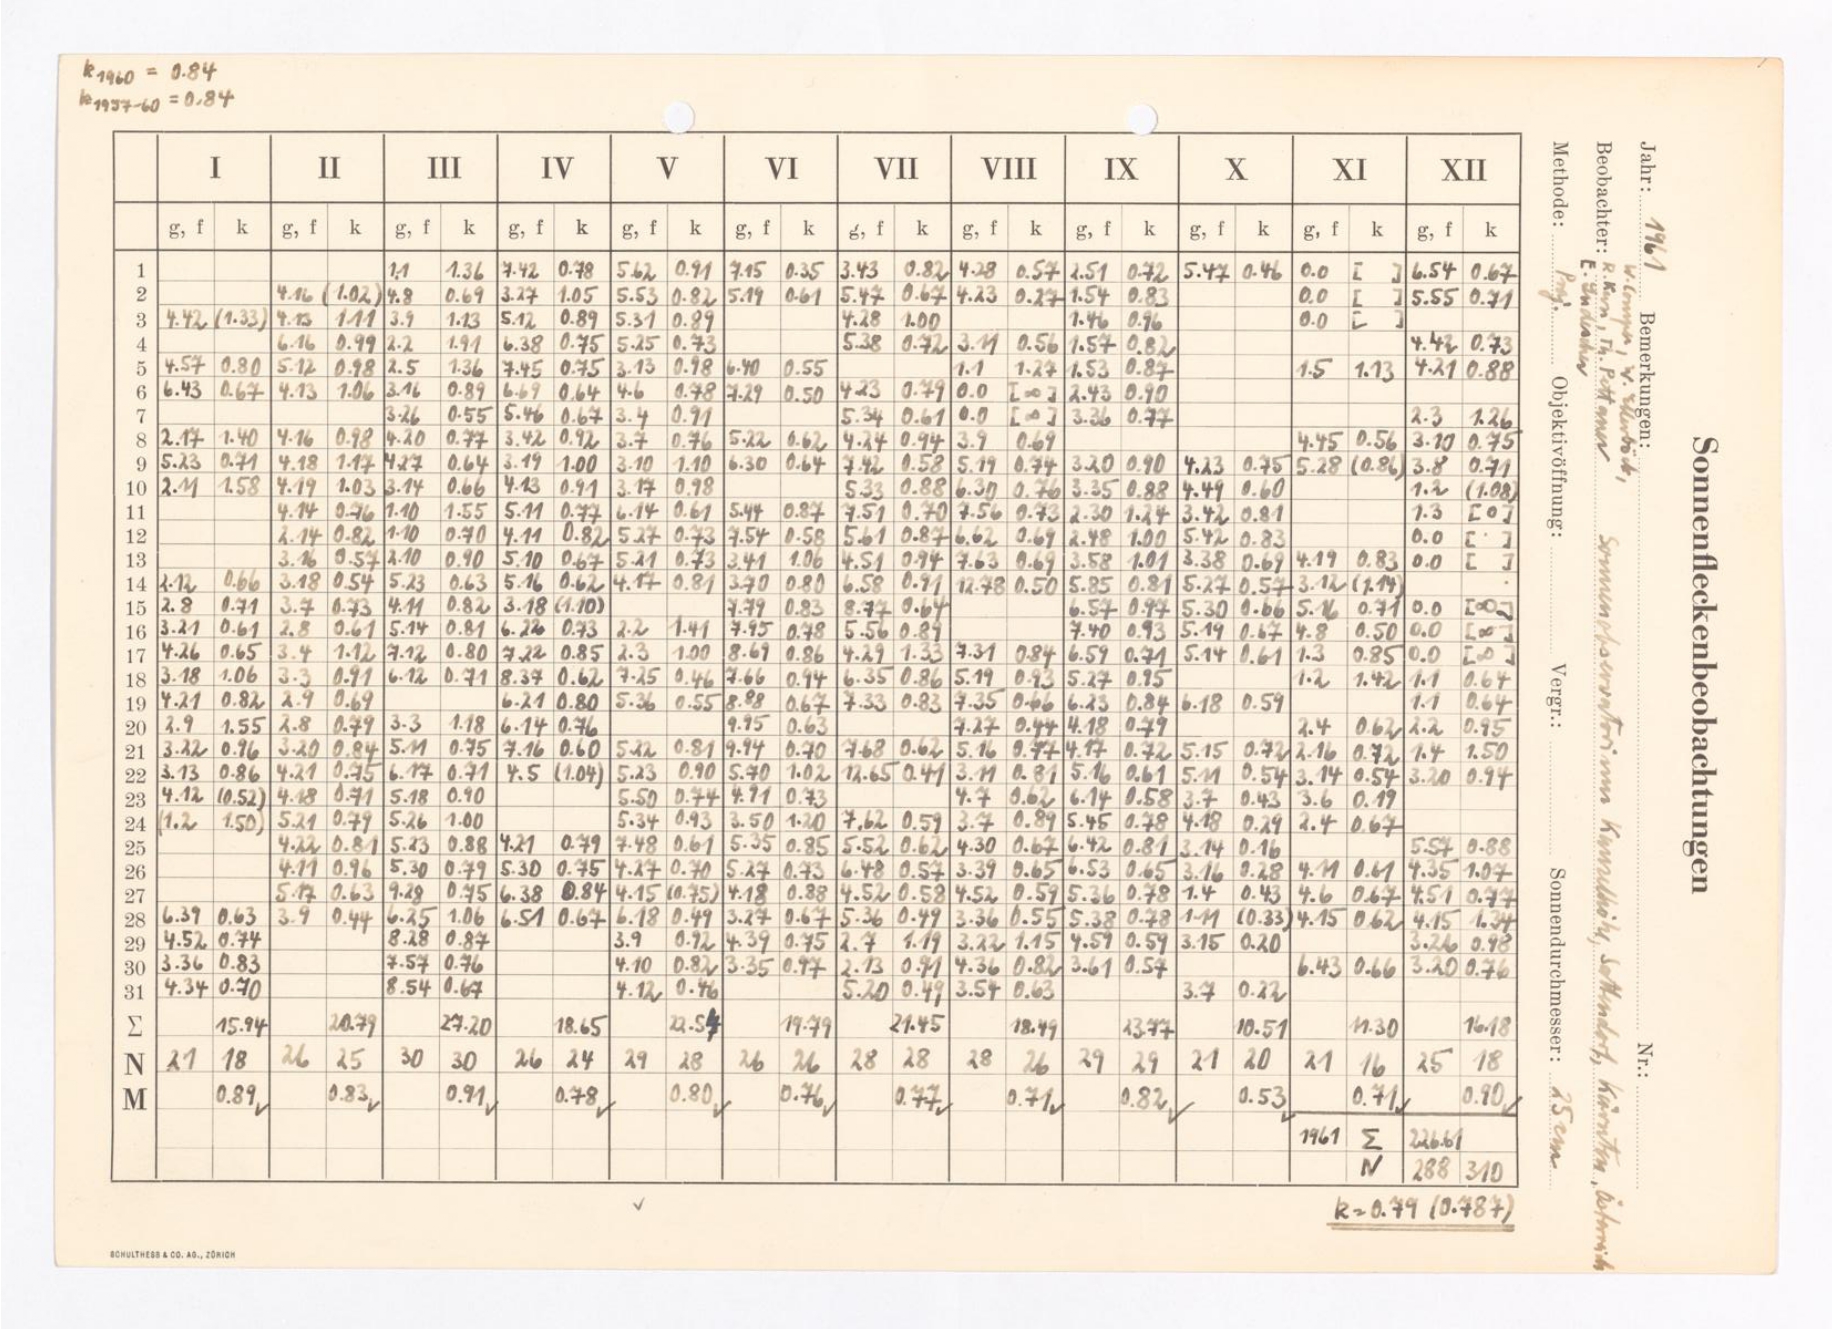 k1960 = 0.84
k1957-60 = 0.84
Sonnenfleckenbeobachtungen
Jahr: 1961 Bemerkungen: Nr.:
Beobachter: Sonnenobservatorium Kanzelhöhe, Sattendorf, Kärnten, Österreich
Methode: Proj. Objektivöffnung: Vergr.: Sonnendurchmesser: 25 cm
I II III IV V VI VII VIII IX X XI XII
g, f k g, f k g, f k g, f k g, f k g, f k g, f k g, f k g, f k g, f k g, f k g, f k
1 1.1 1.36 7.42 0.78 5.62 0.91 7.15 0.35 3.43 0.82 4.28 0.57 2.51 0.72 5.47 0.46 0.0 [ ] 6.54 0.67
2 4.16 (1.02) 4.8 0.69 3.27 1.05 5.53 0.82 5.19 0.61 5.47 0.67 4.23 0.27 1.54 0.83 0.0 [ ] 5.55 0.71
3 4.42 (1.33) 4.13 1.11 3.9 1.13 5.12 0.89 5.31 0.89 4.28 1.00 1.46 0.96 0.0 [ ]
4 6.16 0.99 2.2 1.91 6.38 0.75 5.25 0.73 5.38 0.72 3.11 0.56 1.57 0.82 4.42 0.73
5 4.57 0.80 5.12 0.98 2.5 1.36 7.45 0.75 3.13 0.98 6.40 0.55 1.1 1.27 1.53 0.87 1.5 1.13 4.21 0.88
6 6.43 0.67 4.13 1.06 3.16 0.89 6.69 0.64 4.6 0.78 7.29 0.50 4.23 0.79 0.0 [∞] 2.43 0.90
7 3.26 0.55 5.46 0.67 3.4 0.91 5.34 0.61 0.0 [∞] 3.36 0.77 2.3 1.26
8 2.17 1.40 4.16 0.98 4.20 0.77 3.42 0.92 3.7 0.76 5.22 0.62 4.24 0.94 3.9 0.69 4.45 0.56 3.10 0.75
9 5.23 0.71 4.18 1.17 4.27 0.64 3.19 1.00 3.10 1.10 6.30 0.64 7.42 0.58 5.19 0.74 3.20 0.90 4.23 0.75 5.28 (0.86) 3.8 0.71
10 2.11 1.58 4.19 1.03 3.14 0.66 4.13 0.91 3.17 0.98 5.33 0.88 6.30 0.76 3.35 0.88 4.49 0.60 1.2 (1.08)
11 4.14 0.76 1.10 1.55 5.11 0.77 6.14 0.61 5.44 0.87 7.51 0.70 7.56 0.73 2.30 1.24 3.42 0.81 1.3 [0]
12 2.14 0.82 1.10 0.70 4.11 0.82 5.27 0.73 7.54 0.58 5.61 0.87 6.62 0.69 2.48 1.00 5.42 0.83 0.0 [ ]
13 3.16 0.57 2.10 0.90 5.10 0.67 5.21 0.73 3.41 1.06 4.51 0.94 7.63 0.69 3.58 1.01 3.38 0.69 4.19 0.83 0.0 [ ]
14 2.12 0.66 3.18 0.54 5.23 0.63 5.16 0.62 4.17 0.81 3.70 0.80 6.58 0.91 12.78 0.50 5.85 0.81 5.27 0.57 3.12 (1.14)
15 2.8 0.71 3.7 0.73 4.11 0.82 3.18 (1.10) 7.79 0.83 8.77 0.64 6.57 0.97 5.30 0.66 5.16 0.71 0.0 [∞]
16 3.21 0.61 2.8 0.61 5.14 0.81 6.22 0.73 2.2 1.41 7.95 0.78 5.56 0.89 7.40 0.93 5.19 0.67 4.8 0.50 0.0 [∞]
17 4.26 0.65 3.4 1.12 7.12 0.80 7.22 0.85 2.3 1.00 8.69 0.86 4.29 1.33 7.31 0.84 6.59 0.71 5.14 0.61 1.3 0.85 0.0 [∞]
18 3.18 1.06 3.3 0.91 6.12 0.71 8.37 0.62 7.25 0.46 7.66 0.94 6.35 0.86 5.19 0.93 5.27 0.95 1.2 1.42 1.1 0.64
19 4.21 0.82 2.9 0.69 6.21 0.80 5.36 0.55 8.88 0.67 7.33 0.83 7.35 0.66 6.23 0.84 6.18 0.59 1.1 0.64
20 2.9 1.55 2.8 0.79 3.3 1.18 6.14 0.76 9.95 0.63 7.27 0.44 4.18 0.79 2.4 0.62 2.2 0.95
21 3.22 0.96 3.20 0.84 5.11 0.75 7.16 0.60 5.22 0.81 9.94 0.70 7.68 0.62 5.16 0.77 4.17 0.72 5.15 0.72 2.16 0.72 1.4 1.50
22 3.13 0.86 4.21 0.75 6.17 0.71 4.5 (1.04) 5.23 0.90 5.70 1.02 12.65 0.41 3.11 0.81 5.16 0.61 5.11 0.54 3.14 0.54 3.20 0.94
23 4.12 (0.52) 4.18 0.71 5.18 0.90 5.50 0.74 4.91 0.73 4.7 0.62 6.14 0.58 3.7 0.43 3.6 0.19
24 (1.2 1.50) 5.21 0.79 5.26 1.00 5.34 0.93 3.50 1.20 7.62 0.59 3.7 0.89 5.45 0.78 4.18 0.29 2.4 0.67
25 4.22 0.81 5.23 0.88 4.21 0.79 7.48 0.61 5.35 0.85 5.52 0.62 4.30 0.67 6.42 0.81 3.14 0.16 5.57 0.88
26 4.11 0.96 5.30 0.79 5.30 0.75 4.27 0.70 5.27 0.73 6.48 0.57 3.39 0.65 6.53 0.65 3.16 0.28 4.11 0.61 4.35 1.07
27 5.17 0.63 9.28 0.75 6.38 0.84 4.15 (0.75) 4.18 0.88 4.52 0.58 4.52 0.59 5.36 0.78 1.4 0.43 4.6 0.67 4.51 0.77
28 6.39 0.63 3.9 0.44 6.25 1.06 6.51 0.67 6.18 0.49 3.27 0.67 5.36 0.49 3.36 0.55 5.38 0.78 1.11 (0.33) 4.15 0.62 4.15 1.34
29 4.52 0.74 8.28 0.87 3.9 0.92 4.39 0.75 2.7 1.19 3.22 1.15 4.59 0.59 3.15 0.20 3.26 0.98
30 3.36 0.83 7.57 0.76 4.10 0.82 3.35 0.97 2.13 0.91 4.36 0.82 3.61 0.57 6.43 0.66 3.20 0.76
31 4.34 0.70 8.54 0.67 4.12 0.46 5.20 0.49 3.54 0.63 3.7 0.22
Σ 15.94 20.79 27.20 18.65 22.54 19.79 21.45 18.49 23.77 10.51 11.30 16.18
N 21 18 26 25 30 30 26 24 29 28 26 26 28 28 28 26 29 29 21 20 21 16 25 18
M 0.89 0.83 0.91 0.78 0.80 0.76 0.77 0.71 0.82 0.53 0.71 0.90
1961 Σ 226.61
N 288 310
k=0.79 (0.787)
SCHULTHESS & CO. AG., ZÜRICH